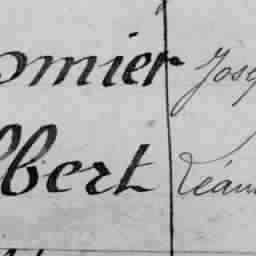 omier Jos
lbert Léan